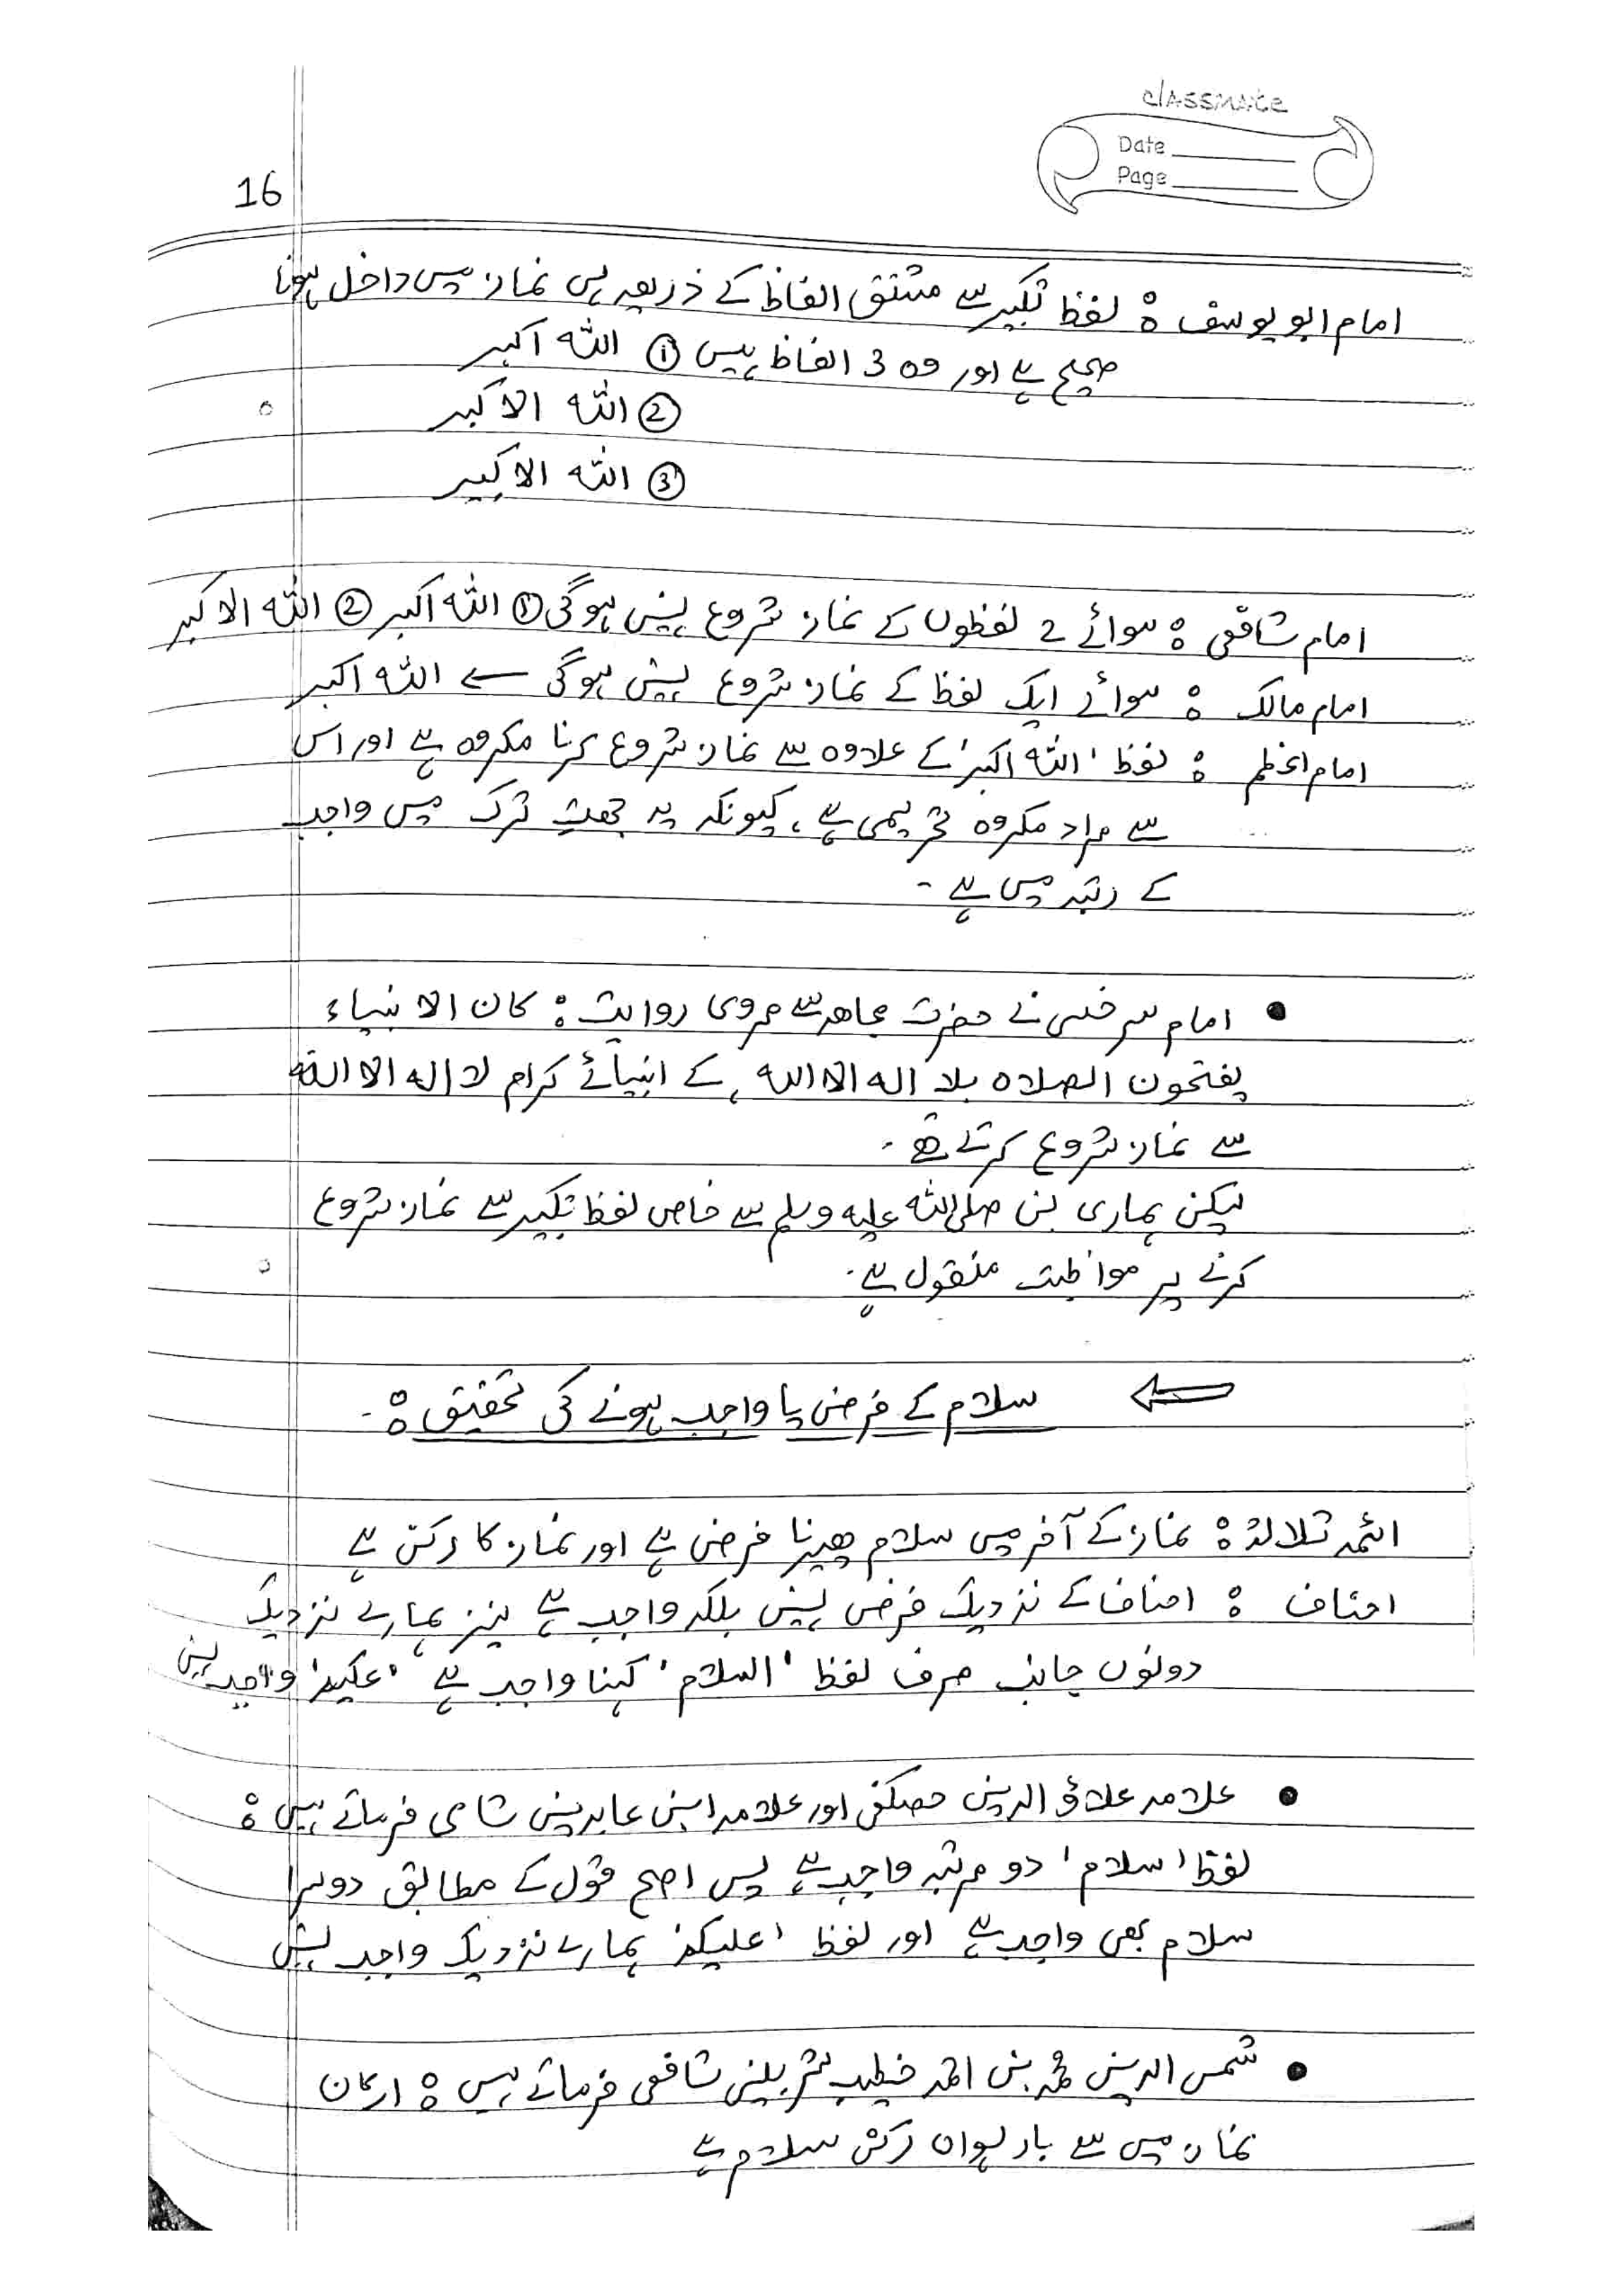 classmate
Date
Page
16
امام ابو یوسف : لفظ تکبیر سے مشتق الفاظ کے ذریعہ ہی نماز میں داخل ہونا
صحیح ہے اور وہ 3 الفاظ ہیں ① اللہ اکبر
② اللہ الاکبر
③ اللہ الاکبیر
امام شافعی : سوائے 2 لفظوں کے نماز شروع نہیں ہوگی ① اللہ اکبر ② اللہ الاکبر
امام مالک : سوائے ایک لفظ کے نماز شروع نہیں ہوگی ← اللہ اکبر
امام اعظم : لفظ 'اللہ اکبر' کے علاوہ سے نماز شروع کرنا مکروہ ہے اور اس
سے مراد مکروہ تحریمی ہے، کیونکہ یہ جھتِ ترک میں واجب
کے رتبہ میں ہے -
• امام سرخسی نے حضرت مجاھد سے مروی روایت : کان الانبیاء
یفتحون الصلاہ بلا الہ الا اللہ ، کے انبیائے کرام لا الہ الا اللہ
سے نماز شروع کرتے تھے -
لیکن ہماری نبی صلی اللہ علیہ وسلم سے خاص لفظ تکبیر سے نماز شروع
کرنے پر مواظبت منقول ہے -
⇐ سلام کے فرض یا واجب ہونے کی تحقیق :-
ائمہ ثلاثہ : نماز کے آخر میں سلام پھیرنا فرض ہے اور نماز کا رکن ہے
احناف : احناف کے نزدیک فرض نہیں بلکہ واجب ہے نیز ہمارے نزدیک
دونوں جانب صرف لفظ 'السلام' کہنا واجب ہے 'علیکم' واجب نہیں
• علامہ علاؤ الدین حصکفی اور علامہ ابن عابدین شامی فرماتے ہیں :
لفظ 'سلام' دو مرتبہ واجب ہے پس اصح قول کے مطابق دوسرا
سلام بھی واجب ہے اور لفظ 'علیکم' ہمارے نزدیک واجب نہیں
• شمس الدین محمد بن احمد خطیب شربینی شافعی فرماتے ہیں : ارکان
نماز میں سے بارہواں رکن سلام ہے